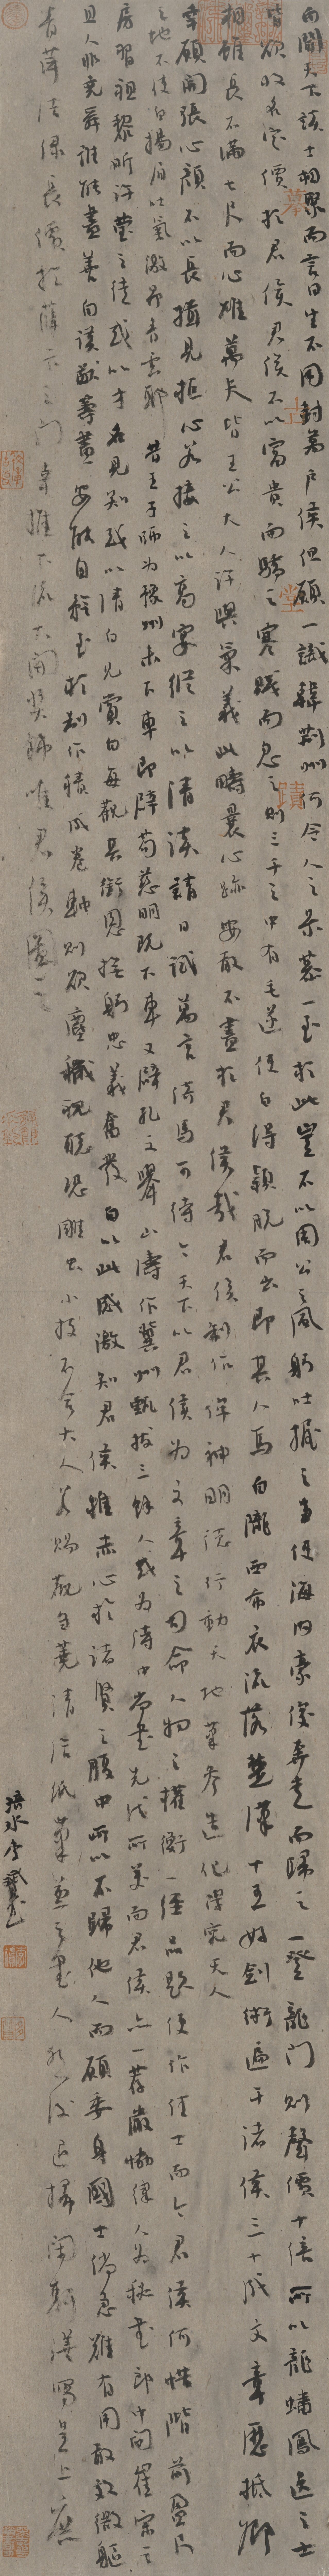 白聞天下談士相聚而言曰生不用封萬戶侯但願一識韓荊州何令人之景慕一至於此豈不以周公之風躬吐握之事使海內豪俊奔走而歸之一登龍門則聲價十倍所以龍蟠鳳逸之士
皆欲收名定價於君侯君侯不以富貴而驕之寒賤而忽之則三千之中有毛遂使白得穎脫而出即其人焉白隴西布衣流落楚漢十五好劍術遍干諸侯三十成文章歷抵卿
相雖長不滿七尺而心雄萬夫皆王公大人許與氣義此疇曩心跡安敢不盡於君侯哉君侯制作侔神明德行動天地筆參造化學究天人
幸願開張心顏不以長揖見拒必若接之以高宴縱之以清談請日試萬言倚馬可待今天下以君侯為文章之司命人物之權衡一經品題便作佳士而今君侯何惜階前盈尺
之地不使白揚眉吐氣激昂青雲耶昔王子師為豫州未下車即辟荀慈明既下車又辟孔文舉山濤作冀州甄拔三餘人或為侍中尚書先代所美而君侯亦一薦嚴協律入為秘書郎中間崔宗之
房習祖黎昕許瑩之徒或以才名見知或以清白見賞白每觀其銜恩撫躬忠義奮發白以此感激知君侯推赤心於諸賢之腹中所以不歸他人而願委身國士倘急難有用敢效微軀
且人非堯舜誰能盡善白謨猷籌畫安能自矜至於制作積成卷軸則欲塵穢視聽恐雕蟲小技不合大人若賜觀芻蕘請給紙筆兼之書人然後退掃閑軒繕寫呈上庶
青萍結綠長價於薛卞之門幸推下流大開獎飾唯君侯圖之